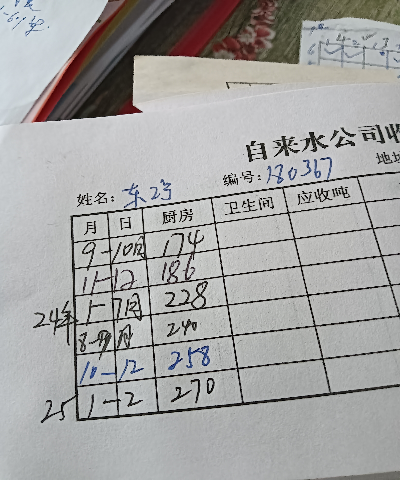 自来水公司收
姓名: 东2号 编号: 180367 地址
月 日 厨房 卫生间 应收吨
9-10月 174
11-12 186
24年 1-7月 228
8-9月 240
10-12 258
25 1-2 270